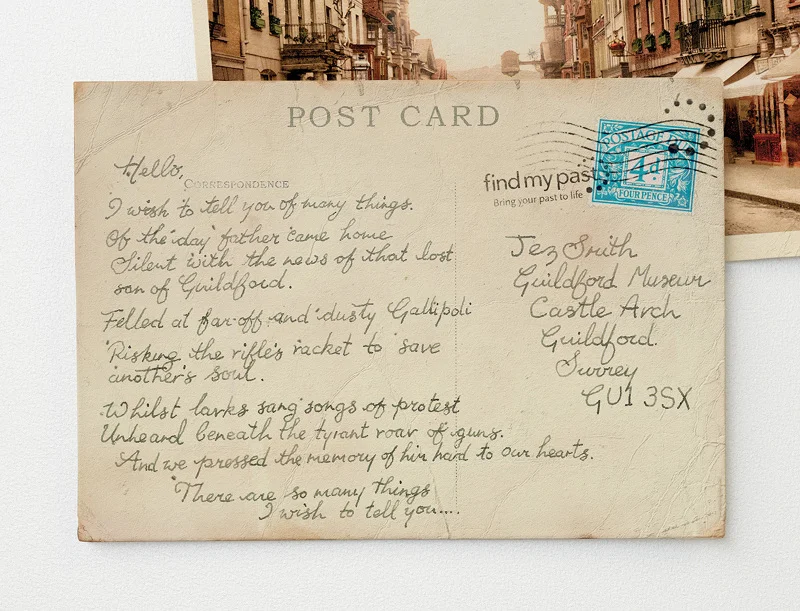 POST CARD
Hello,
CORRESPONDENCE
I wish to tell you of many things.
Of the day father came home
Silent with the news of that lost
son of Guildford.
Felled at far-off and dusty Gallipoli
Risking the rifle's racket to save
another's soul.
Whilst larks sang songs of protest
Unheard beneath the tyrant roar of guns.
And we pressed the memory of him hard to our hearts.
There are so many things
I wish to tell you....
findmypast
Bring your past to life
POSTAGE DUE
4d
FOUR PENCE
Jez Smith
Guildford Museum
Castle Arch
Guildford.
Surrey
GU1 3SX